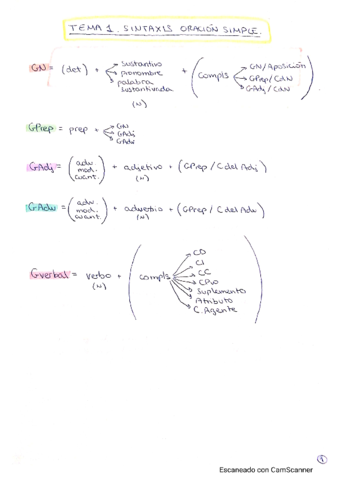 TEMA 1. SINTAXIS ORACIÓN SIMPLE.
GN = (det) + sustantivo
pronombre
palabra sustantivada
(N)
+ (compls GN/Aposición
GPrep/CdN
GAdj/CdN)
GPrep = prep + GN
GAdj
GAdv
GAdj = (adv. mod. cuant.) + adjetivo + (GPrep / C del Adj)
(N)
GAdv = (adv. mod. cuant.) + adverbio + (GPrep / C del Adv)
(N)
Gverbal = verbo + (compls
(N)
CD
CI
CC
CPvo
Suplemento
Atributo
C. Agente)
1
Escaneado con CamScanner